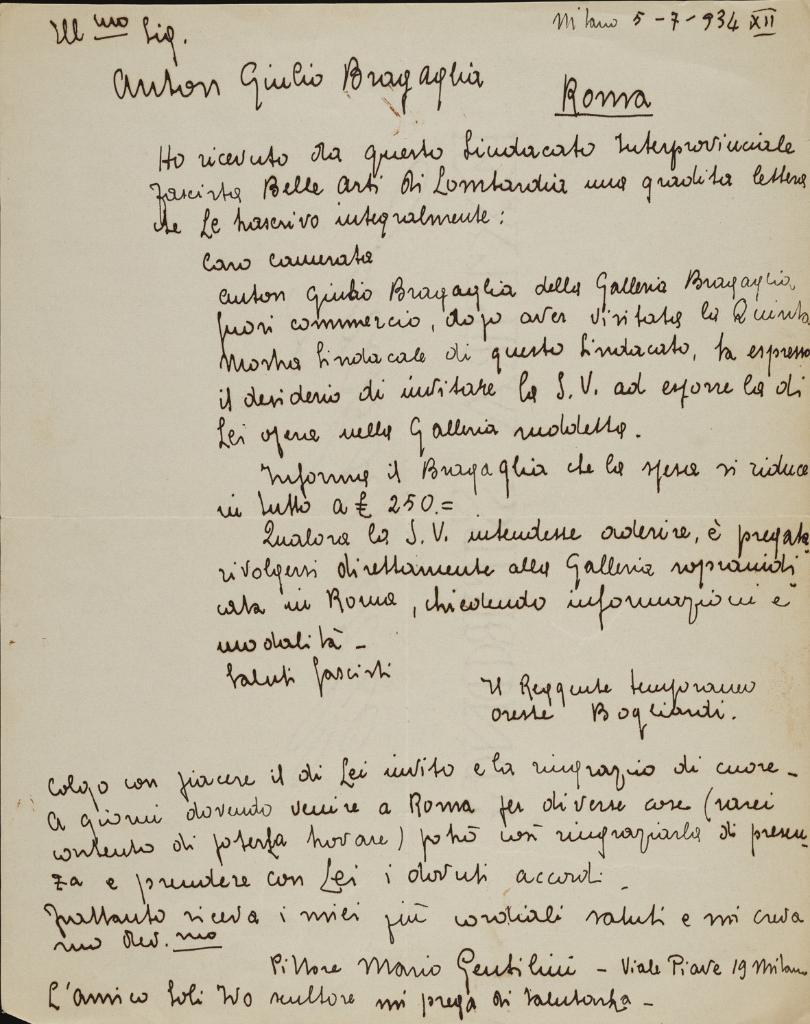 Ill mo Sig.
Milano 5-7-934 XII
Anton Giulio Bragaglia
Roma
Ho ricevuto da questo Sindacato Interprovinciale
Fascista Belle Arti di Lombardia una gradita lettera
che Le trascrivo integralmente:
Caro camerata
Anton Giulio Bragaglia della Galleria Bragaglia,
fuori commercio, dopo aver visitata la Quinta
Mostra Sindacale di questo Sindacato, ha espresso
il desiderio di invitare la S.V. ad esporre la di
Lei opera nella Galleria suddetta.
Informa il Bragaglia che la spesa si riduce
in tutto a £ 250.=
Qualora la S.V. intendesse aderire, è pregata
rivolgersi direttamente alla Galleria sopraindi
cata in Roma, chiedendo informazioni e
modalità -
Saluti fascisti
Il Reggente temporaneo
Oreste Bogliardi.
Colgo con piacere il di Lei invito e la ringrazio di cuore -
A giorni dovendo venire a Roma per diverse cose (sarei
contento di poterla trovare) potrò così ringraziarla di presen-
za e prendere con Lei i dovuti accordi -
Frattanto riceva i miei più cordiali saluti e mi creda
suo dev. mo
Pittore Mario Gentilini - Viale Piave 19 Milano
L'amico Soli Ivo scultore mi prega di salutarla -